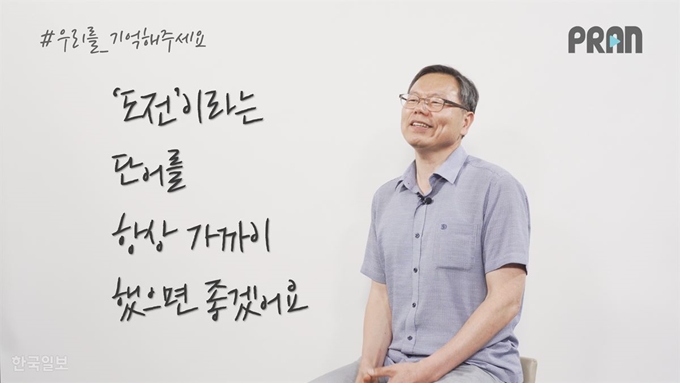 #우리를_기억해주세요
PRAN
‘도전’이라는
단어를
항상 가까이
했으면 좋겠어요
한국일보